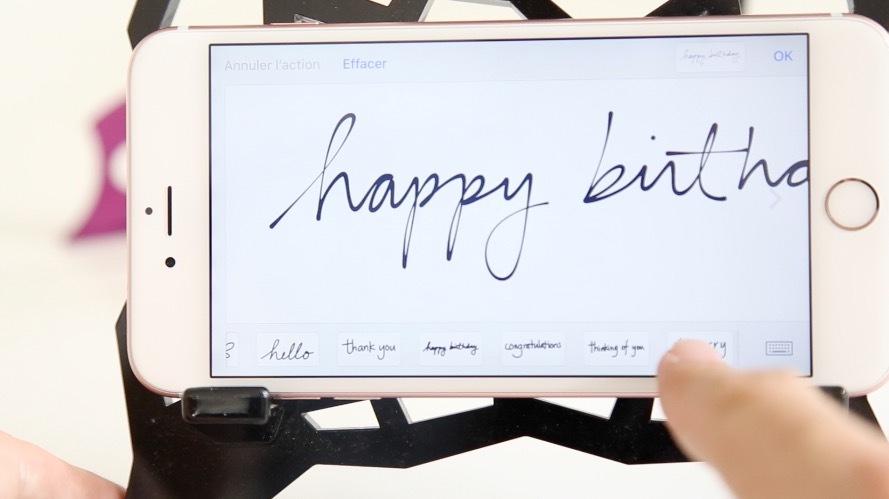 Annuler l'action Effacer happy birthday OK
happy
hello thank you happy birthday congratulations thinking of you